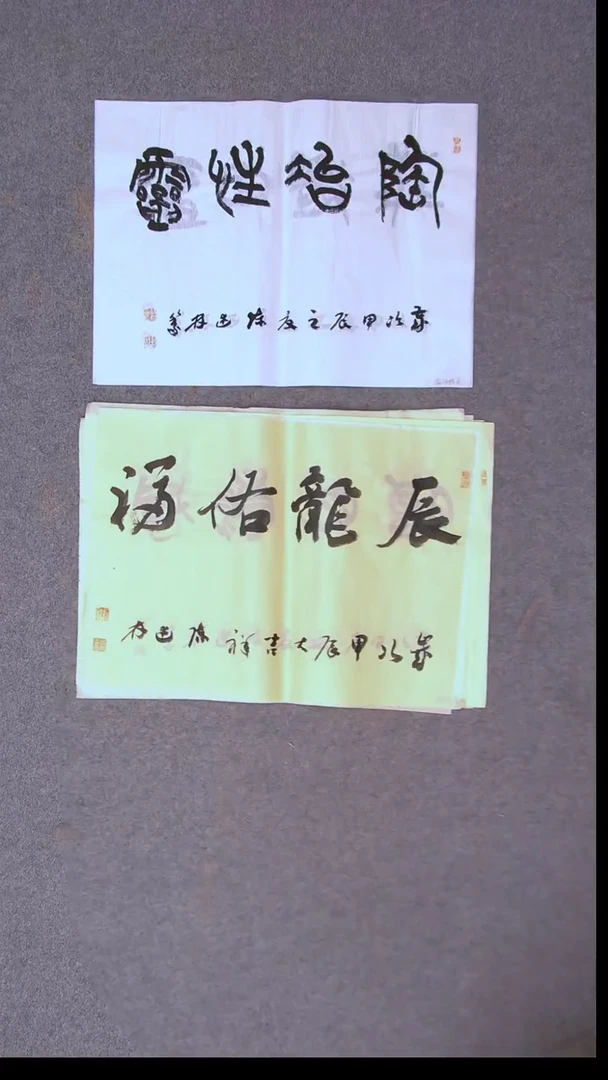 陶冶性靈
歲次甲辰之夏陈存篆
辰龍佑福
歲次甲辰大吉祥陈存